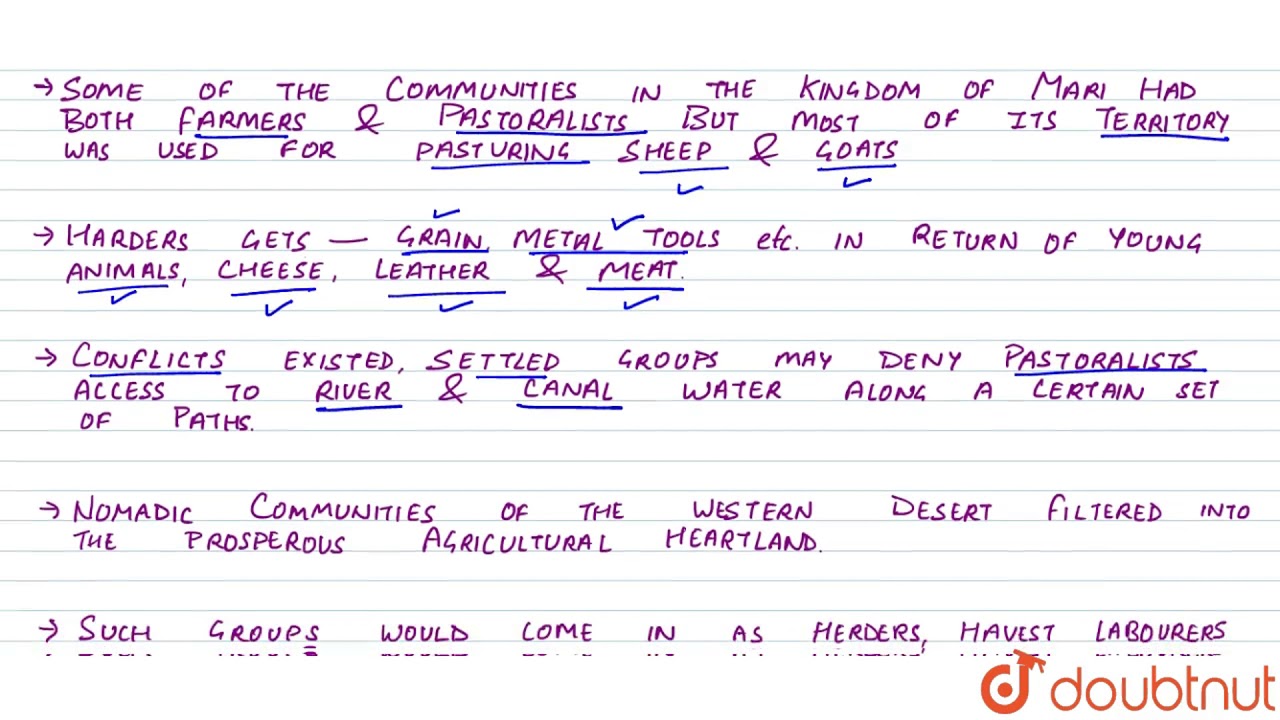 → SOME OF THE COMMUNITIES IN THE KINGDOM OF MARI HAD
BOTH FARMERS & PASTORALISTS BUT MOST OF ITS TERRITORY
WAS USED FOR PASTURING SHEEP & GOATS
→ HARDERS GETS — GRAIN, METAL TOOLS etc. IN RETURN OF YOUNG
ANIMALS, CHEESE, LEATHER & MEAT.
→ CONFLICTS EXISTED, SETTLED GROUPS MAY DENY PASTORALISTS
ACCESS TO RIVER & CANAL WATER ALONG A CERTAIN SET
OF PATHS.
→ NOMADIC COMMUNITIES OF THE WESTERN DESERT FILTERED INTO
THE PROSPEROUS AGRICULTURAL HEARTLAND.
→ SUCH GROUPS WOULD COME IN AS HERDERS, HAVEST LABOURERS
doubtnut